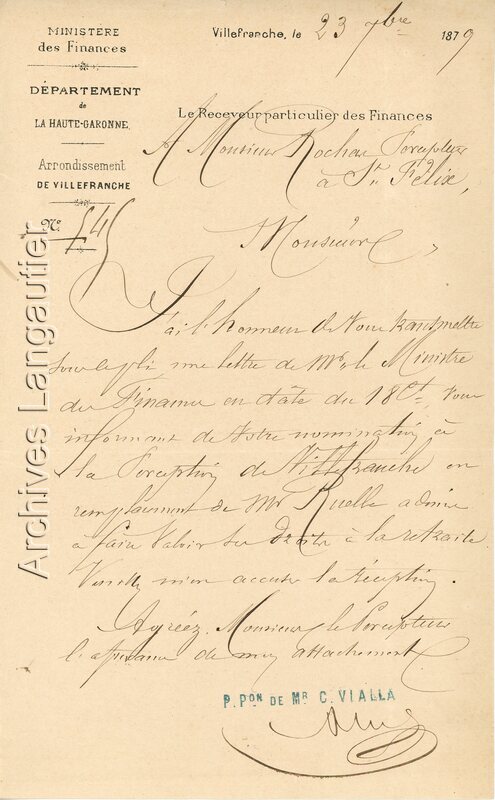 MINISTÈRE
des Finances
DÉPARTEMENT
de
LA HAUTE-GARONNE.
Arrondissement
DE VILLEFRANCHE
N° 545
Villefranche, le 23 7bre 1879
Le Receveur particulier des Finances
A Monsieur Rochas Percepteur
à St Félix,
Monsieur,
J'ai l'honneur de vous transmettre
sous ce pli une lettre de Mr. le Ministre
des Finances en date du 18 Ct, vous
informant de votre nomination à
la Perception de Villefranche en
remplacement de Mr Ruelle admis
à faire valoir ses droits à la retraite
Veuillez m'en accuser la réception.
Agréez, Monsieur le Percepteur
l'assurance de mon attachement
P. PON DE MR C. VIALLA
Archives Langautier